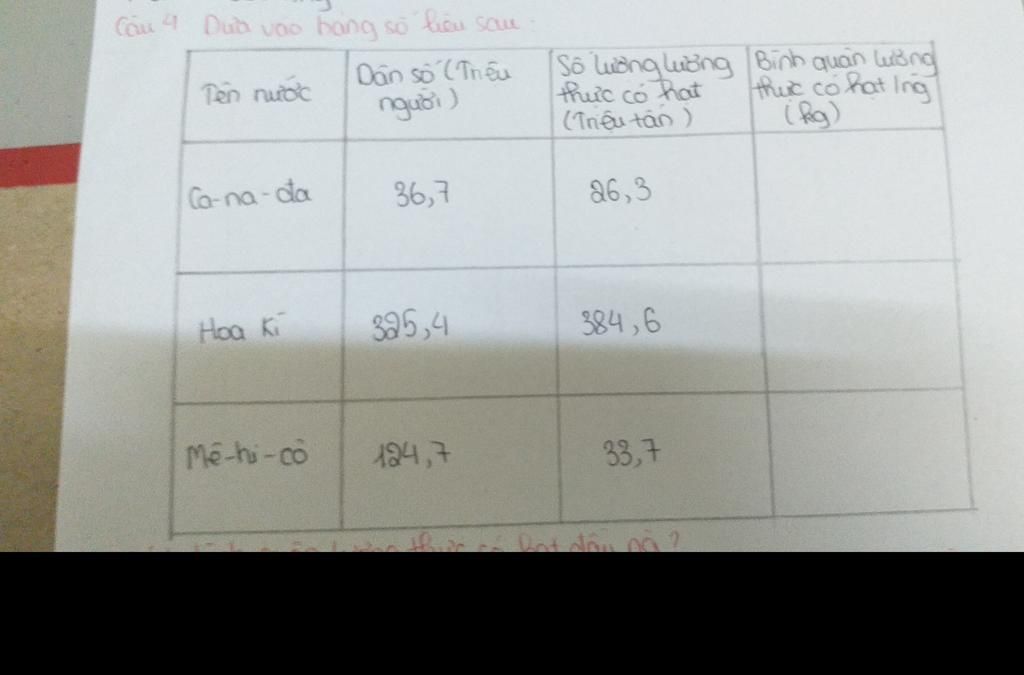 Câu 4 Dựa vào bảng số liệu sau:
Tên nước
Dân số (Triệu
người)
Số lượng lương
thực có hạt
(Triệu tấn)
Bình quân lương
thực có hạt /ng
(kg)
Ca-na-đa
36,7
26,3
Hoa Kì
325,4
384,6
Mê-hi-cô
124,7
33,7
lương thực có hạt đầu